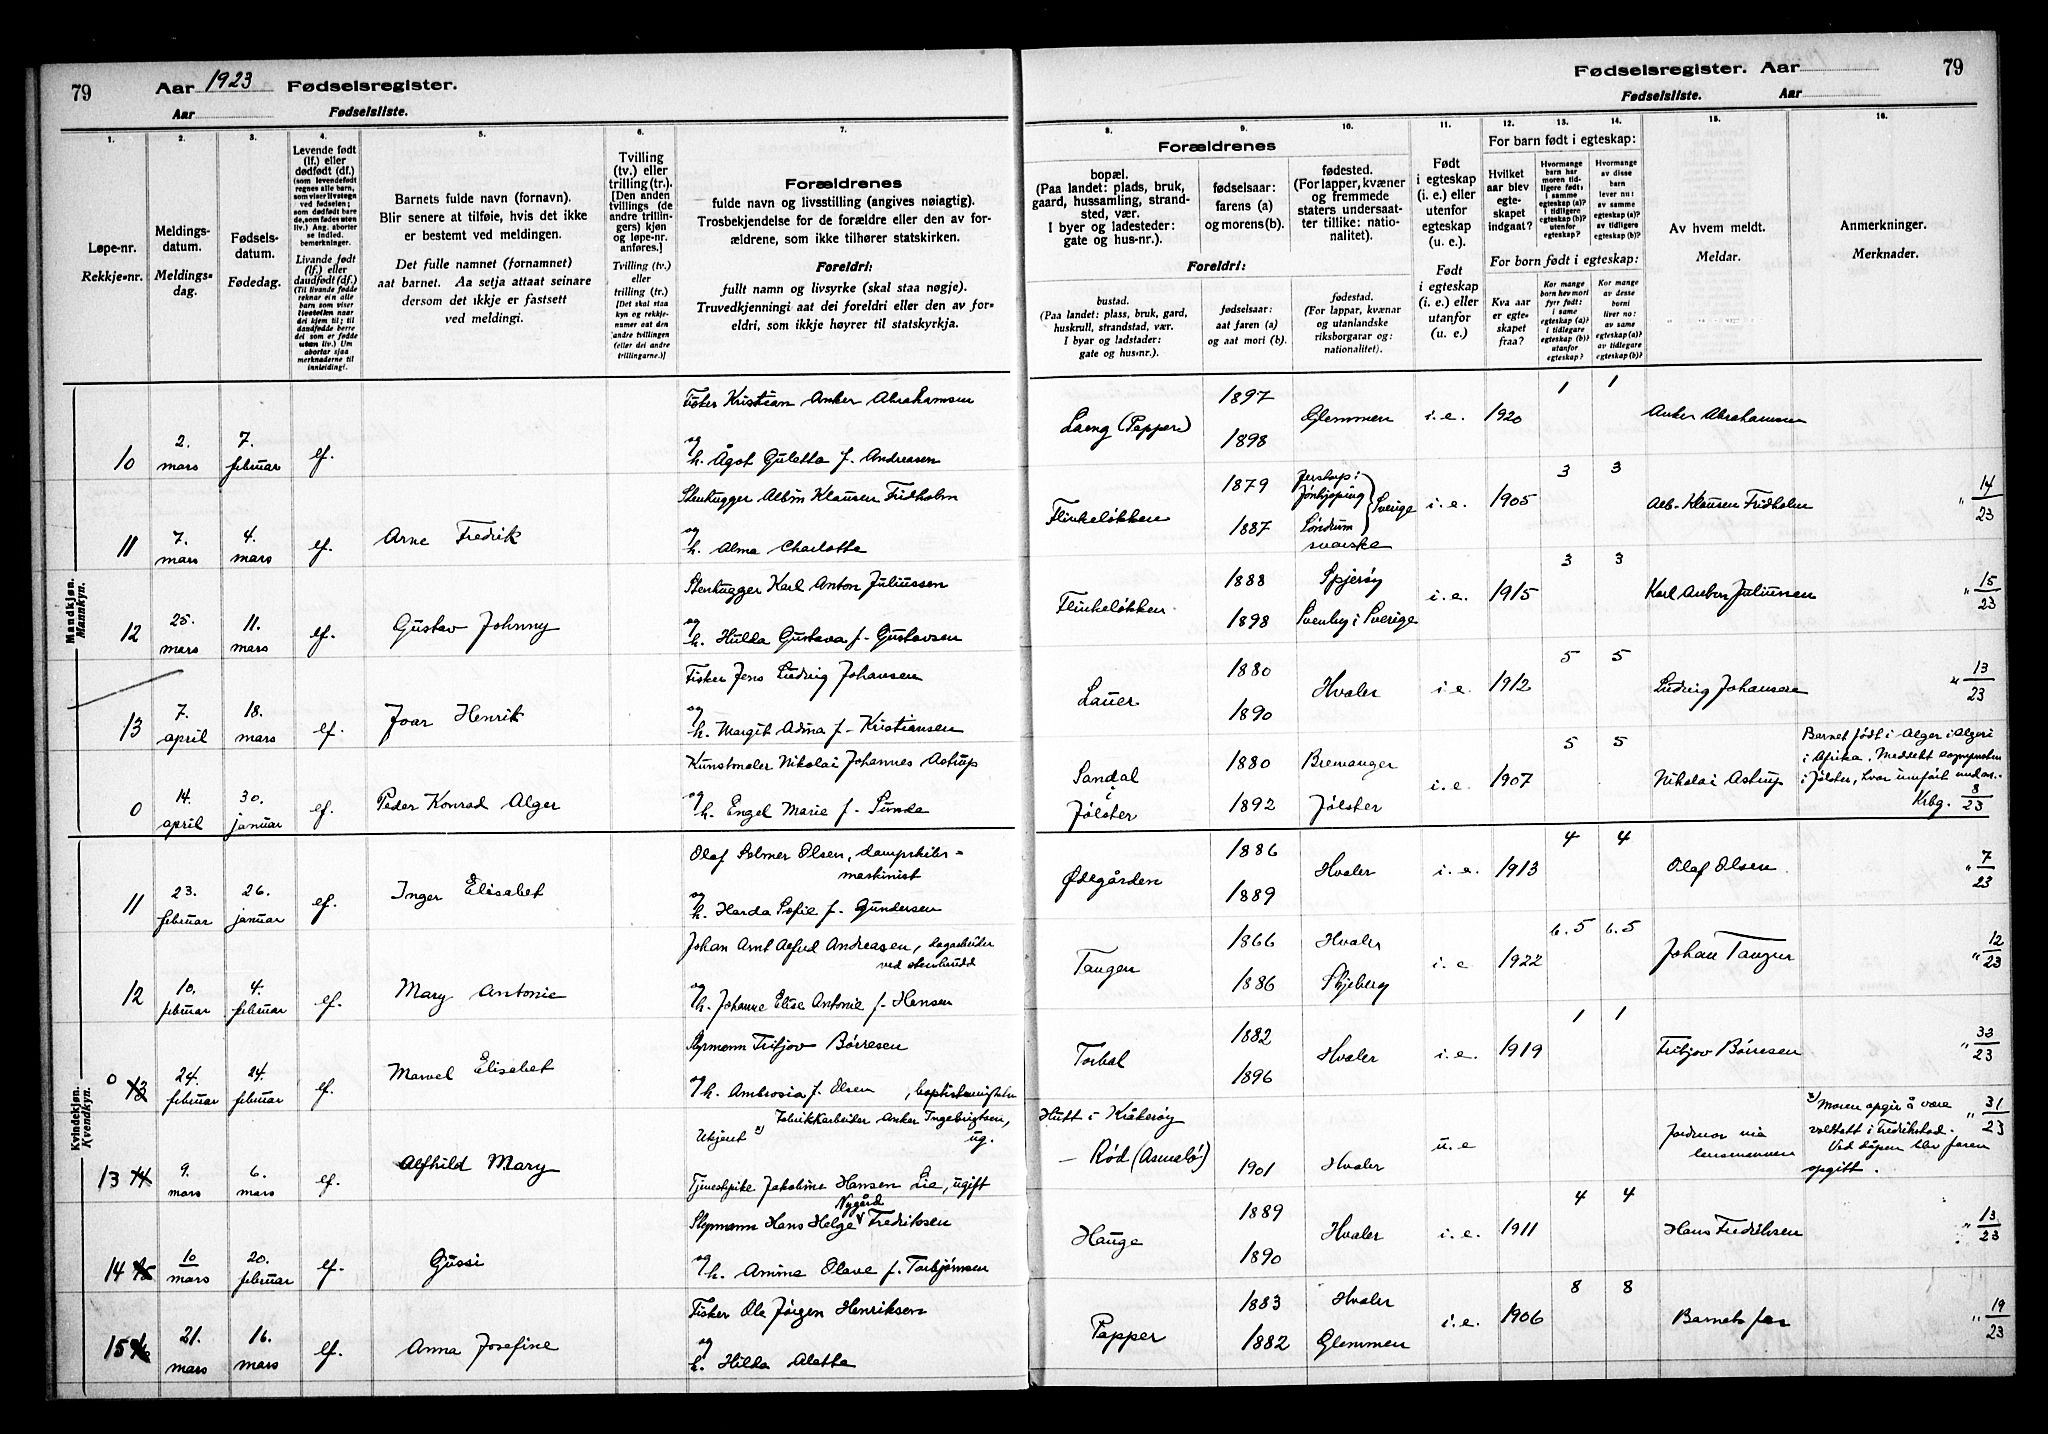 79
Aar 1923 Fødselsregister.
Aar Fødselsliste.
Fødselsregister. Aar
79
Fødselsliste. Aar
1. 2. 3. 4. 5. 6. 7.
Løpe-nr.
Rekkje-nr.
Meldings-
datum.
Meldings-
dag.
Fødsels-
datum.
Fødedag.
Levende født
(lf.) eller
dødfødt (df.)
(som levendefødt
regnes alle barn,
som viser livstegn
ved fødselen;
som dødfødt bare
de, som fødes uten
liv.) Ang. aborter
se indled.
bemerkninger.
Livande født
(lf.) eller
daudfødt (df.)
Barnets fulde navn (fornavn).
Blir senere at tilføie, hvis det ikke
er bestemt ved meldingen.
Det fulle namnet (fornamnet)
aat barnet. Aa setja attaat seinare
dersom det ikkje er fastsett
ved meldingi.
Tvilling
(tv.) eller
trilling (tr.).
[Den anden
tvillings (de
andre trillin-
gers) kjøn
og løpe-nr.
anføres.]
Tvilling (tv.)
eller
trilling (tr.)
[Det skal staa
kyn og rekkje-
numer aat den
andre tvillingen
(eller dei andre
trillingarne.)]
Forældrenes
fulde navn og livsstilling (angives nøiagtig).
Trosbekjendelse for de forældre eller den av for-
ældrene, som ikke tilhører statskirken.
Foreldri:
fullt namn og livsyrke (skal staa nøgje).
Truvedkjenningi aat dei foreldri eller den av for-
eldri, som ikkje høyrer til statskyrkja.
8. 9. 10. 11. 12. 13. 14. 15. 16.
Forældrenes
bopæl.
(Paa landet: plads, bruk,
gaard, hussamling, strand-
sted, vær.
I byer og ladesteder:
gate og hus-nr.).
fødselsaar:
farens (a)
og morens (b).
fødested.
(For lapper, kvæner
og fremmede
staters undersaat-
ter tillike: natio-
nalitet).
Foreldri:
bustad.
(Paa landet: plass, bruk, gard,
huskrull, strandstad, vær.
I byar og ladstader:
gate og hus-nr.).
fødselsaar:
aat faren (a)
og aat mori (b).
fødestad.
(For lappar, kvænar
og utanlandske
riksborgarar og:
nationalitet).
Født
i egteskap
(i. e.) eller
utenfor
egteskap
(u. e.).
Født
i egteskap
(i. e.) eller
utanfor
(u. e.)
For barn født i egteskap:
Hvilket
aar blev
egte-
skapet
indgaat?
Hvormange
barn har
moren tid-
ligere født:
i samme
egteskap (a)?
i tidligere
egteskap (b)?
utenfor
egteskap?
Hvormange
av disse
barn
lever nu:
av samme
egteskap (a)?
av tidligere
egteskap (b)?
For born født i egteskap:
Kva aar
er egte-
skapet
fraa?
Kor mange
born hev mori
fyrr født:
i same
egteskap (a)?
i tidlegare
egteskap (b)?
utanfor
egteskap?
Kor mange
av desse
borni
liver no:
av same
egteskap (a)?
av tidlegare
egteskap (b)?
Av hvem meldt.
Meldar.
Anmerkninger.
Merknader.
Mandkjøn.
Mannkyn.
10 2. mars 7. februar lf. Fisker Kristian Anker Abrahamsen
og h. Ågot Guletta f. Andreasen
Laeng (Papper) 1897 1898 Glemmen i.e. 1920 1 1 Anker Abrahamsen
11 7. mars 4. mars lf. Arne Fredrik Stenhugger Albin Klausen Fridholm
og h. Alma Charlotte
Flinkeløkken 1879 1887 Jönkjöping Söndrum Sverige svenske i.e. 1905 3 3 Alb. Klausen Fridholm " 14/23
12 25. mars 11. mars lf. Gustav Johnny Stenhugger Karl Anton Juliussen
og h. Hulda Gustava f. Gustavsen
Flinkeløkken 1888 1898 Spjerøy Svenby i Sverige i.e. 1915 3 3 Karl Anton Juliussen " 15/23
13 7. april 18. mars lf. Joar Henrik Fisker Jens Ludvig Johansen
og h. Margit Adina f. Kristiansen
Lauer 1880 1890 Hvaler i.e. 1912 5 5 Ludvig Johansen " 13/23
0 14. april 30. januar lf. Peder Konrad Alger Kunstmaler Nikolai Johannes Astrup
og h. Engel Marie f. Sunde
Sandal i Jølster 1880 1892 Bremanger Jølster i.e. 1907 5 5 Nikolai Astrup Barnet født i Alger i Algeri
i Afrika. Meddelt sognepresten
i Jølster, hvor innført under
Krbg. 8/23
Kvindekjøn.
Kvendkyn.
11 23. februar 26. januar lf. Inger Elisabet Olaf Selmer Olsen, dampskibs=
maskinist
og h. Harda Sofie f. Gundersen
Ødegården 1886 1889 Hvaler i.e. 1913 4 4 Olaf Olsen " 7/23
12 10. februar 4. februar lf. Mary Antonie Johan Arnt Alfred Andreasen, dagarbeider
ved stenbrudd
og h. Johanne Elise Antonie f. Hansen
Tangen 1866 1886 Hvaler Skjeberg i.e 1922 6. 5 6. 5 Johan Tangen " 12/23
0 13 24. februar 24. februar lf. Marvel Elisabet Styrmann Fritjov Børresen
og h. Ambrosia f. Olsen, baptistmenigheten
Torbal 1882 1896 Hvaler i.e. 1919 1 1 Fritjov Børresen " 33/23
13 14 9. mars 6. mars lf. Alfhild Mary Ukjent x) Fabrikkarbeider Anker Ingebrigtsen,
ug.
Tjenestpike Jakobine Hansen Lie, ugift
Hutt i Kråkerøy
— Rød (Asmalø) 1901 Hvaler u.e Jordmor via
lensmannen x) Moren opgir å være
voldtatt i Fredrikstad.
Ved dåpen blev faren
opgitt. " 31/23
14 15 10 mars 20. februar lf. Gussi Styrmann Hans Helge Nygård Fredriksen
og h. Amine Olave f. Torbjørnsen
Hauge 1889 1890 Hvaler i.e. 1911 4 4 Hans Fredriksen " 13/23
15 16 21. mars 16. mars lf. Anna Josefine Fisker Ole Jørgen Henriksen
og h. Hilda Aletta
Papper 1883 1882 Hvaler Glemmen i.e. 1906 8 8 Barnets far " 19/23